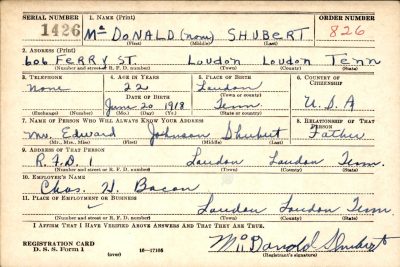 SERIAL NUMBER 1. NAME (Print) ORDER NUMBER
1426 Mc DONALD (nom) SHUBERT 826
(First) (Middle) (Last)
2. ADDRESS (Print)
606 FERRY ST. Loudon Loudon Tenn
(Number and street or R. F. D. number) (Town) (County) (State)
3. TELEPHONE 4. AGE IN YEARS 5. PLACE OF BIRTH 6. COUNTRY OF CITIZENSHIP
None 22 Loudon
DATE OF BIRTH (Town or county)
June 20 1918 Tenn U.S.A
(Exchange) (Number) (Mo.) (Day) (Yr.) (State or country)
7. NAME OF PERSON WHO WILL ALWAYS KNOW YOUR ADDRESS 8. RELATIONSHIP OF THAT PERSON
Mr. Edward Johnson Shubert Father
(Mr., Mrs., Miss) (First) (Middle) (Last)
9. ADDRESS OF THAT PERSON
R.F.D. 1 Loudon Loudon Tenn.
(Number and street or R. F. D. number) (Town) (County) (State)
10. EMPLOYER'S NAME
Chas. H. Bacon
11. PLACE OF EMPLOYMENT OR BUSINESS
Loudon Loudon Tenn.
(Number and street or R. F. D. number) (Town) (County) (State)
I AFFIRM THAT I HAVE VERIFIED ABOVE ANSWERS AND THAT THEY ARE TRUE.
REGISTRATION CARD
D. S. S. Form 1 (over) 16—17105 McDonald Shubert
(Registrant's signature)